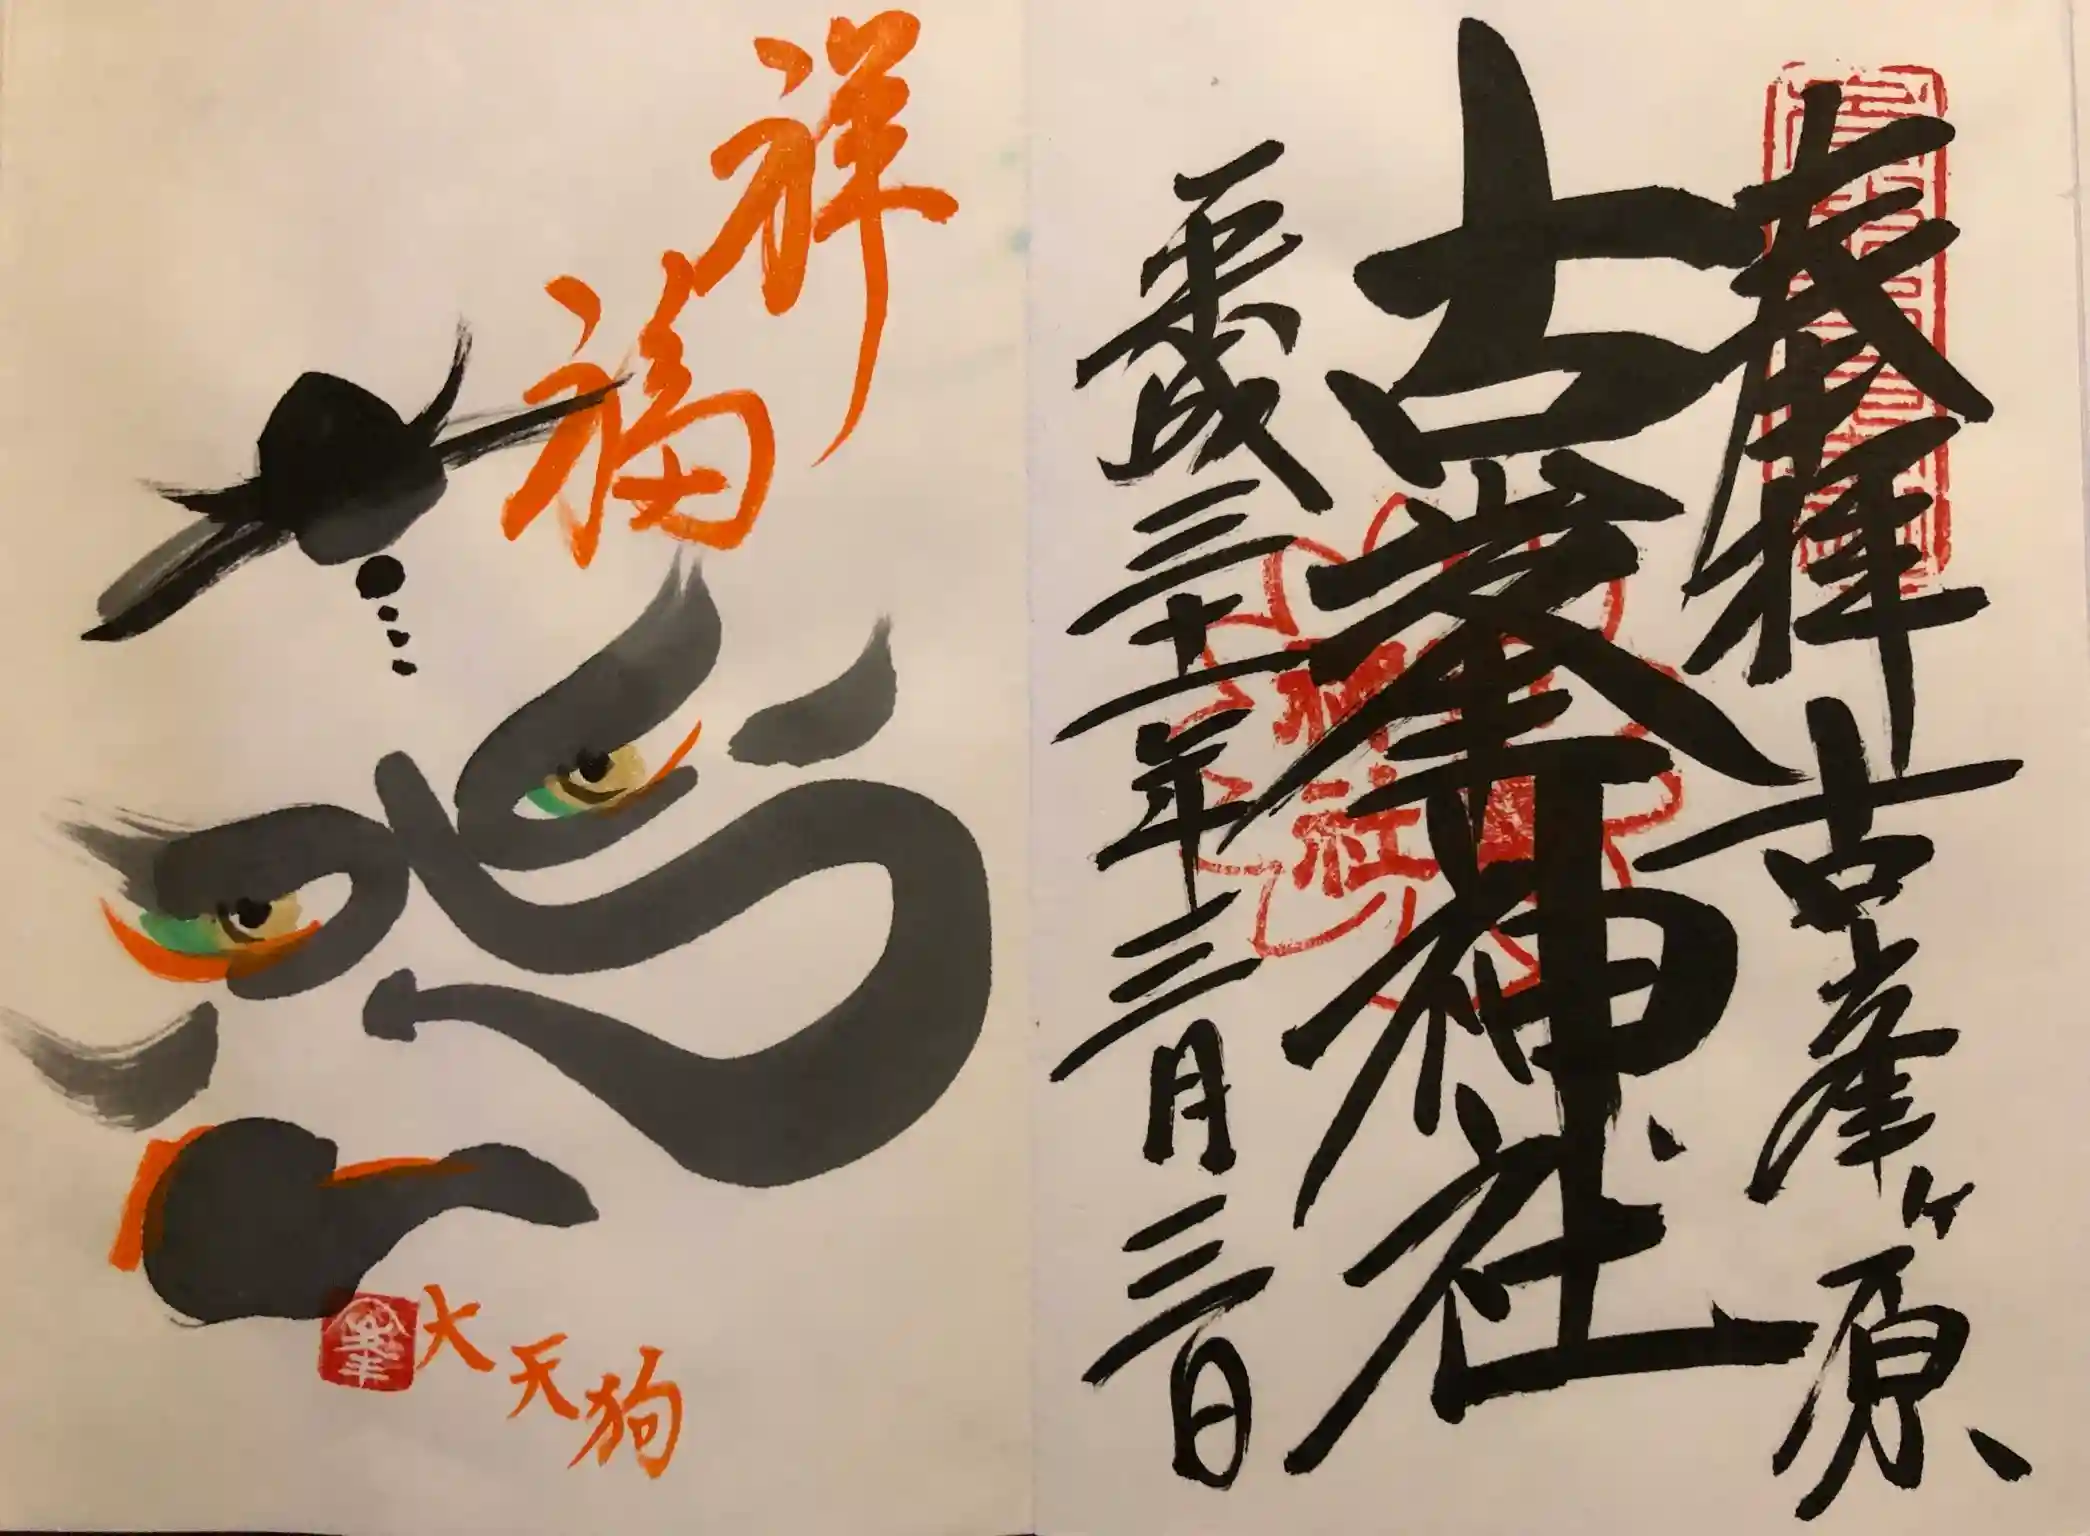 奉拝 古峯ヶ原
古峯神社
平成三十一年三月三日
祥福
大天狗
峯